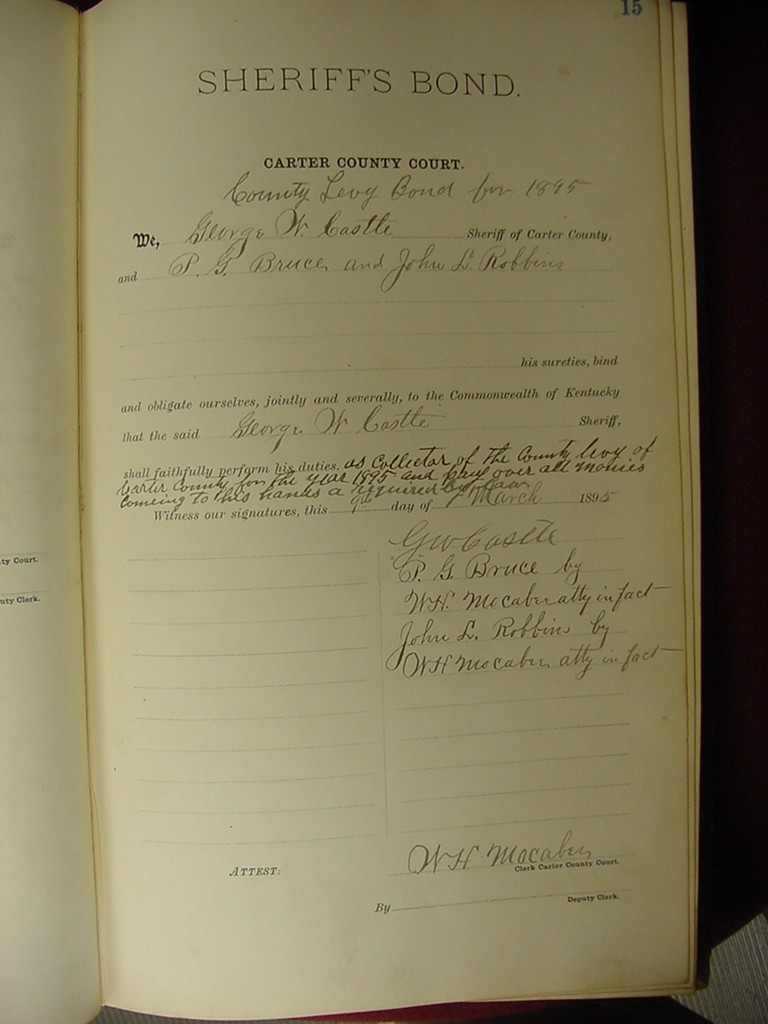 15
SHERIFF'S BOND.
CARTER COUNTY COURT.
County Levy Bond for 1895
We, George W. Castle Sheriff of Carter County,
and P. G. Bruce and John L. Robbins
his sureties, bind
and obligate ourselves, jointly and severally, to the Commonwealth of Kentucky
that the said George W Castle Sheriff,
shall faithfully perform his duties. as collector of the County levy of
Carter County for the year 1895 and pay over all monies
comeing to his hands a required by law
Witness our signatures, this day of March 1895
GW Castle
P. G. Bruce by
W.H. Mocabee atty in fact
John L. Robbins by
WH Mocabee atty in fact
ty Court.
uty Clerk.
ATTEST: WH Mocabee
Clerk Carter County Court.
By Deputy Clerk.